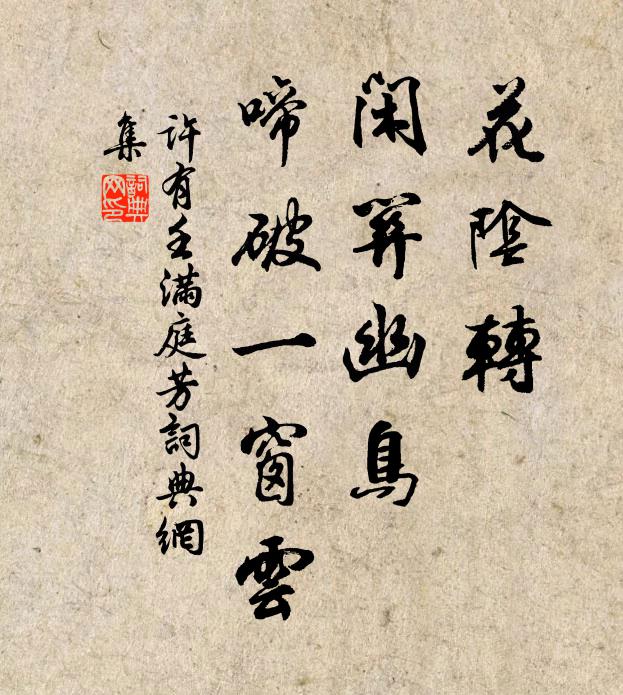 花陰轉
閑幽鳥
啼破一窗雲
許有壬滿庭芳詞典網
集
詞典
网印